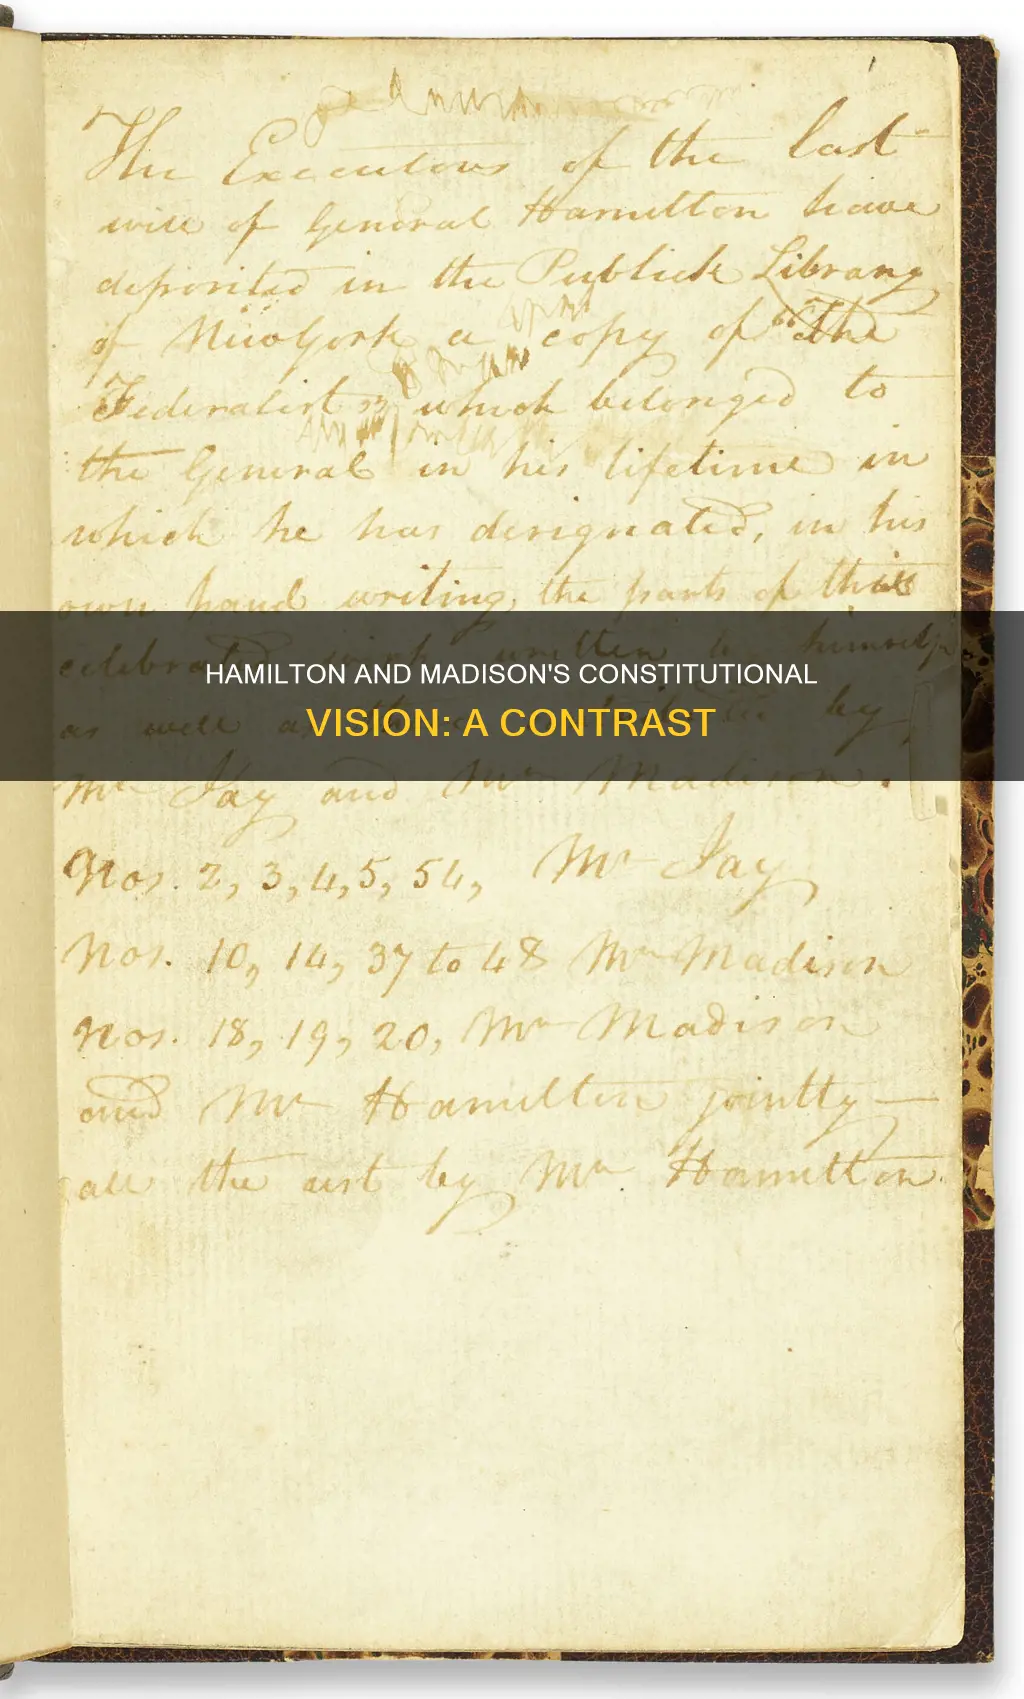 The Executors of the last
will of General Hamilton have
deposited in the Publick Library
of New York a copy of "The
Federalist" which belonged to
the General in his lifetime in
which he has designated, in his
own hand writing, the parts of that
celebrated work written by himself,
HAMILTON AND MADISON'S CONSTITUTIONAL
VISION: A CONTRAST
as well as by
Mr Jay and Mr Madison.
Nos. 2, 3, 4, 5, 54, Mr Jay
Nos. 10, 14, 37 to 48 Mr Madison
Nos. 18, 19, 20, Mr Madison
and Mr Hamilton jointly—
all the rest by Mr Hamilton.